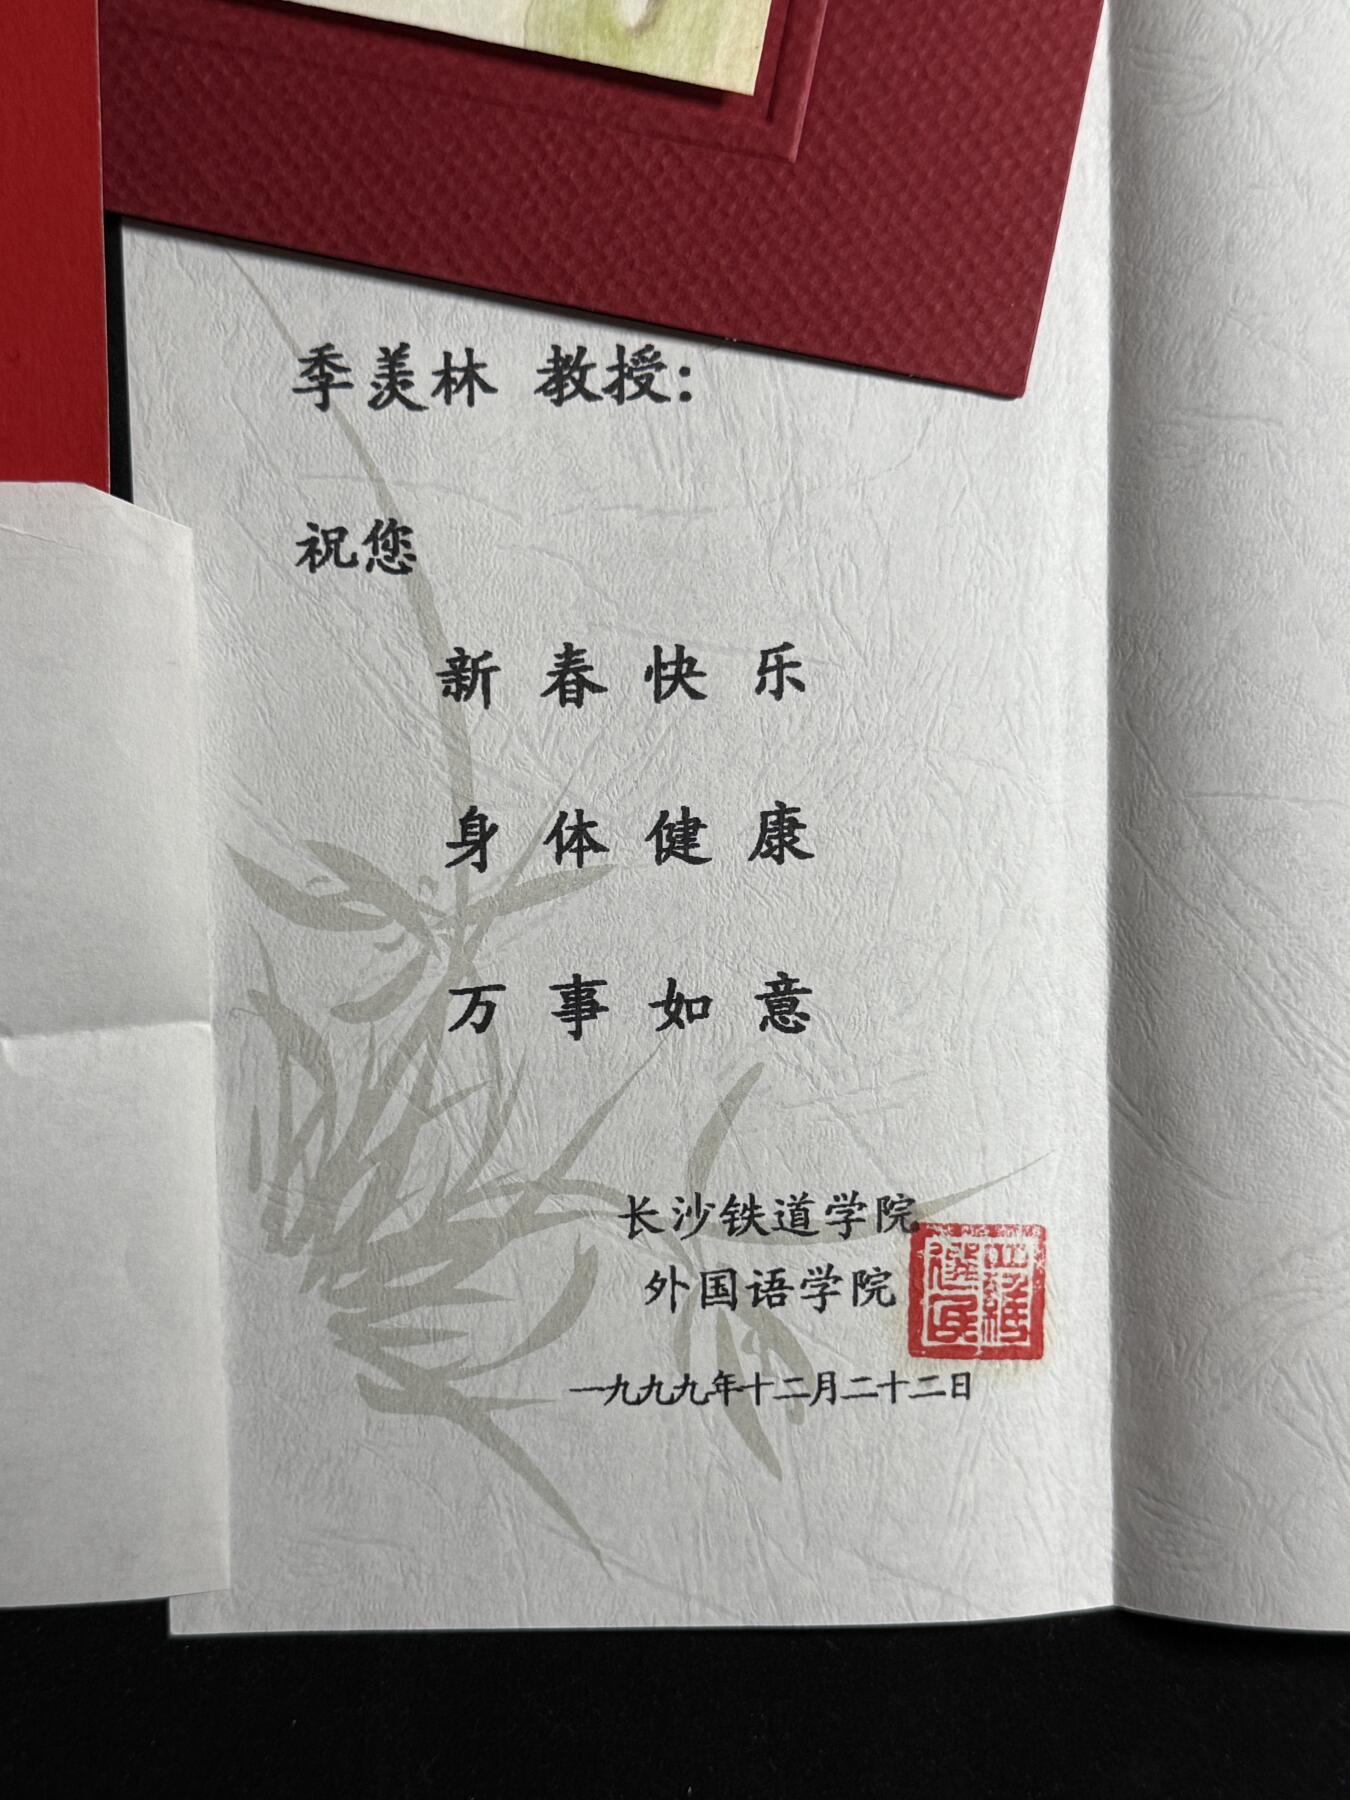 季羡林 教授：
祝您
新春快乐
身体健康
万事如意
长沙铁道学院
外国语学院
一九九九年十二月二十二日